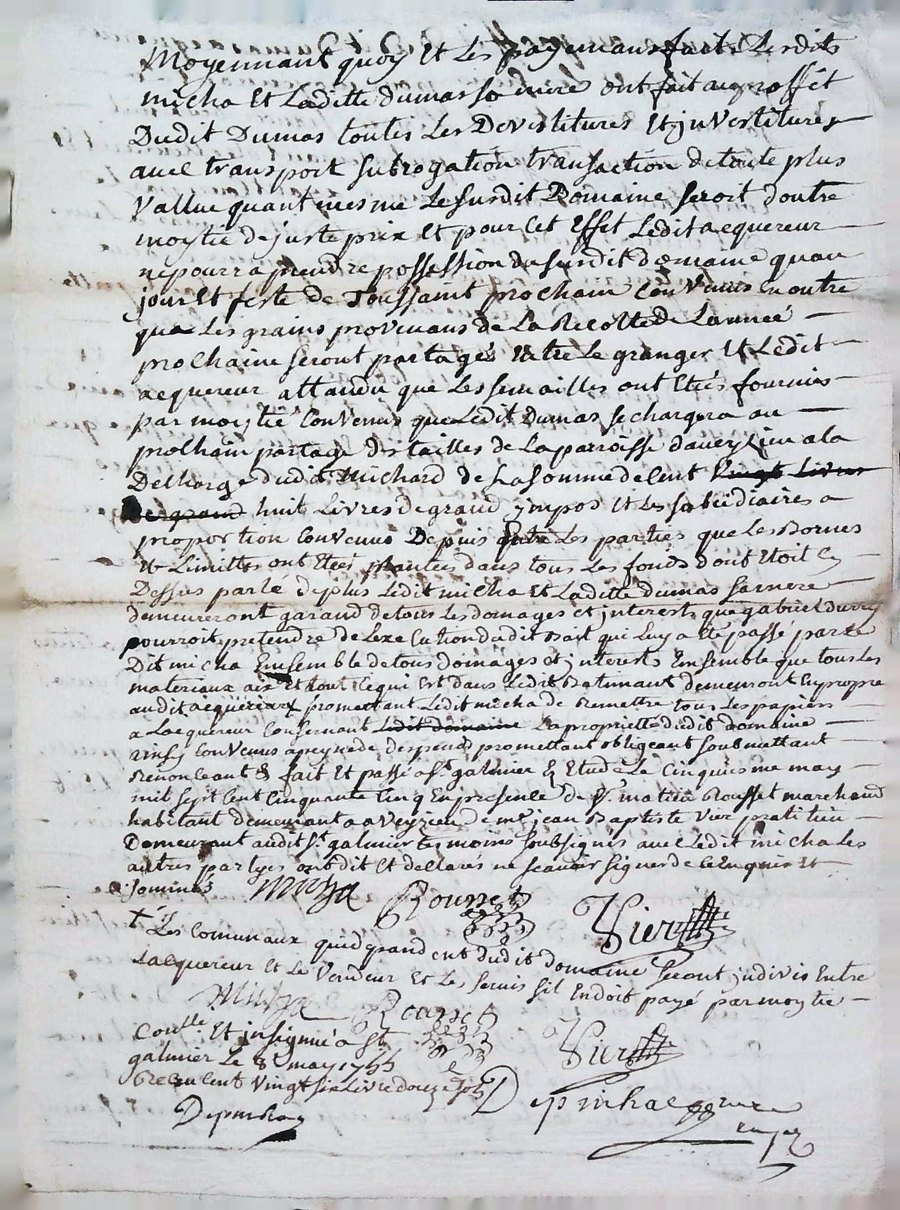 Moyennant quoy Et Les payemans faits Lesdits
micha Et Laditte dumas sa mere ont fait au proffet
Dudit Dumas toutes Les Devestitures Et jnvestitures
avec transport subrogation transaction de toute plus
Vallue quant mesme Le susdit Domaine seroit doutre
moytie de juste prix Et pour Cet Effet Ledit acquereur
ne pourra prendre possession du susdit domaine quau
jour Et feste de Toussaint prochain Convenus En outre
que Les grains provenans de La Recolte de Lannee
prochaine seront partages Entre Le granger Et Ledit
acquereur attandu que Les semailles ont Etés fournies
par moytié Convenus que Ledit Dumas se chargera au
prochain partage des tailles de La parroisse daveyzieu a la
Decharge dudit Michard de La somme de Cent vingt Livres
De grand huit Livres de grand jmpos Et Les subcidiaires a
proportion Convenus Depuis Entre Les parties que Les Bornes
Et Limittes ont Etés plantées dans tous Les fonds dont Etoit Cy
Dessus parlé de plus Ledit micha Et Laditte dumas sa mere
demeureront garand de tous Les domages et jnterests que gabriel
pourroit pretendre de Lexecution dudit Bail qui Luy a Eté passé par Le
Dit micha Ensemble de tous domages et jnterests Ensemble que tous Les
materiaux aix Et tout Ce qui Est dans Ledit Batimant demeuront En propre
audit acquereur promettant Ledit micha de Remettre tous Les papiers
a Lacquereur Consernant Ledit domaine La propriette dudit domaine
ainsy Convenus a peyne de despends promettant obligeant soubmettant
Renonceant & fait Et passé a St galmier En Etude Le Cinquiesme may
mil sept Cent Cinquante Cinq En presence de Sr Rousset marchand
habitant demeurant a aveyzieu Et me jean Baptiste Vier praticien
Demeurant audit St galmier tesmoins soubsignés avec Ledit micha Les
autres partyes ont dit Et declarés ne scavoir signer de Ce Enquis Et
sommés micha Rousset Vier
+ Les Comunaux quid pandent dudit domaine seront jndivis Entre
Lacquereur Et Le Vendeur Et Le Servis sil En doit payé par moytié
micha Rousset Vier
Conllé Et jnsignué a St
galmier Le 8e may 1755
Vingt six Livre douze sols
Depinhac Depinhac